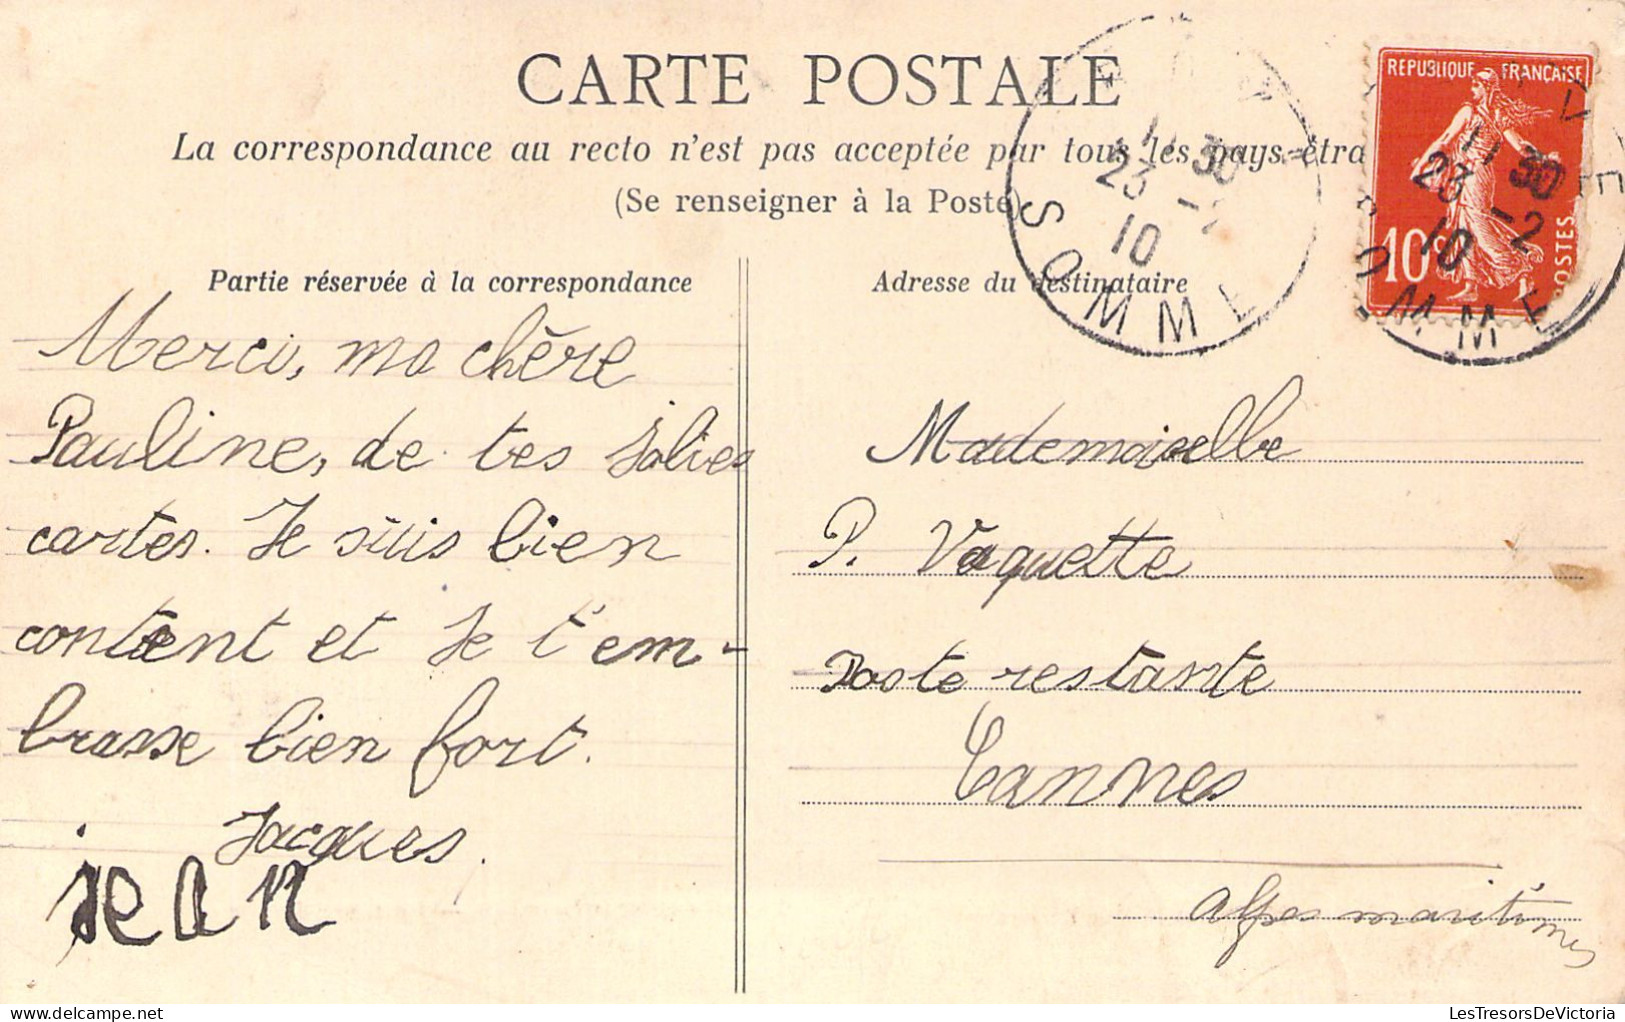 CARTE POSTALE
La correspondance au recto n'est pas acceptée par tous les pays étra
(Se renseigner à la Poste)
Partie réservée à la correspondance
Merci, ma chère
Pauline, de tes jolies
cartes. Je suis bien
content et je t'em-
brasse bien fort.
Jacques.
jean
Adresse du destinataire
Mademoiselle
P. Vaquette
Poste restante
Cannes
Alpes maritimes
11 30
23 -2
10
SOMME
REPUBLIQUE FRANÇAISE
10c
POSTES
11 30
23 -2
10
SOMME
LesTresorsDeVictoria